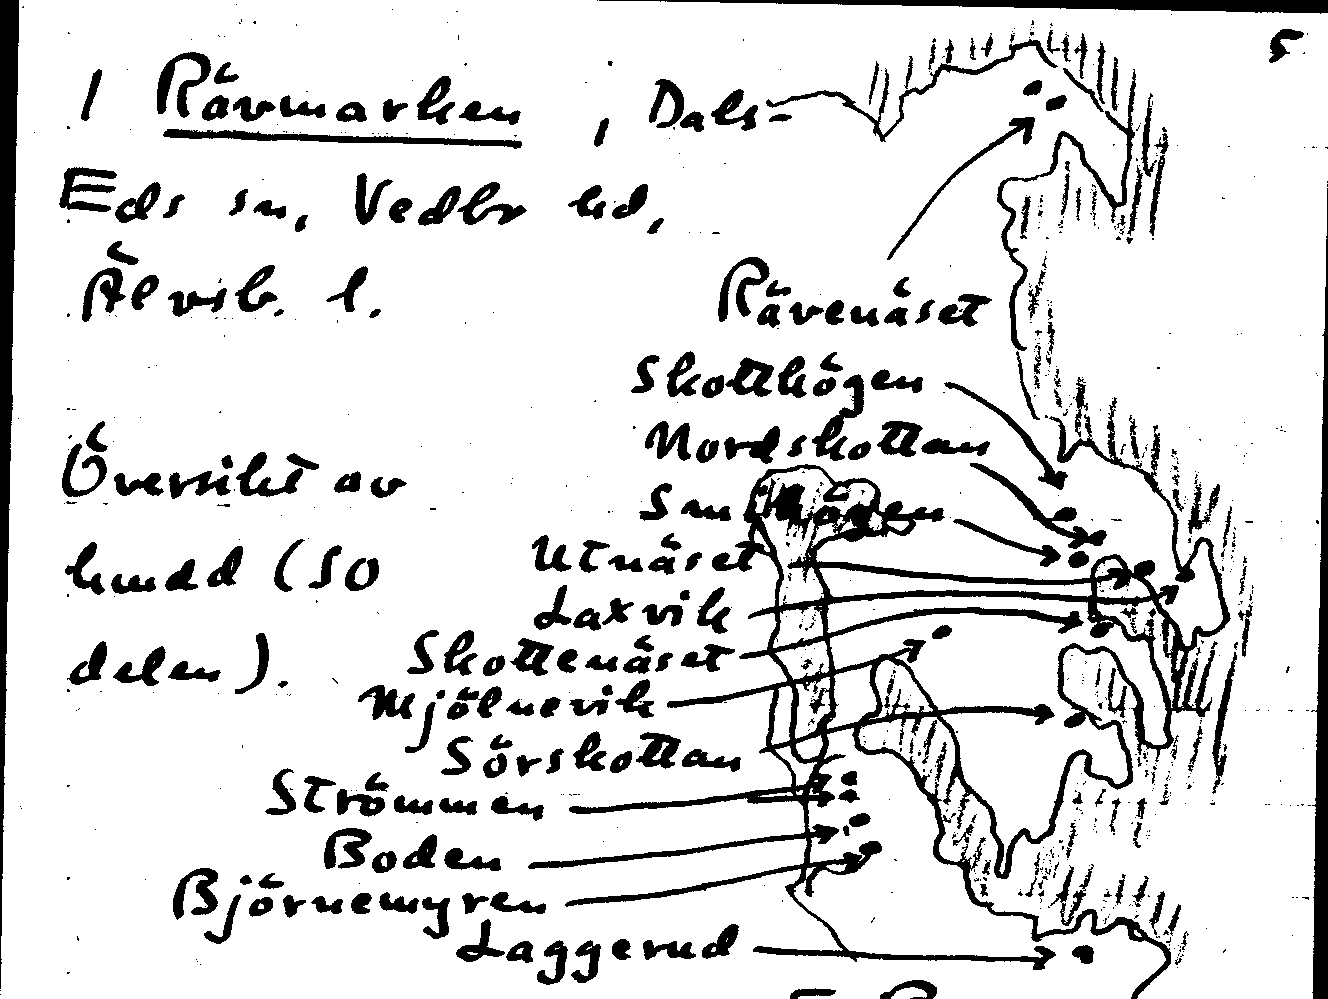 5
1 Rävmarken, Dals-
Eds sn, Vedbo hd,
Älvsb. l.
Översikt av
hmdd (SO
delen).
Rävenäset
Skotthögen
Nordskottan
Utnäset
Laxvik
Skottenäset
Mjölnevik
Sörskottan
Strömmen
Boden
Björnemyren
Laggerud